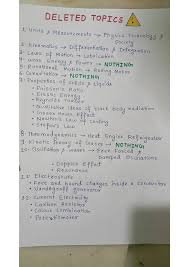 DELETED TOPICS
1. Units & Measurements → Physics Technology &
Society
2. Kinematics → Differentiation & Integration
3. Laws of Motion → Lubrication
4. Work Energy & Power → NOTHING!
5. Rotational Motion →
6. Gravitation → NOTHING!
7. Properties of Solids & Liquids
- Poisson's Ratio
- Elastic Energy
- Reynolds Number
- Qualitative ideas of Black Body Radiation
- Green House Effect
- Newton's law of Cooling
- Stefan's Law
8. Thermodynamics → Heat Engine Refrigerator
9. Kinetic Theory of Gases → NOTHING!
10. Oscillation & Waves → Force Forced &
Damped Oscillations
- Doppler Effect
- Resonance
11. Electrostatic
- Free and bound charges inside a Conductor
- Vandegraaff Generator
12. Current Electricity
- Carbon Resistor
- Colour Combination